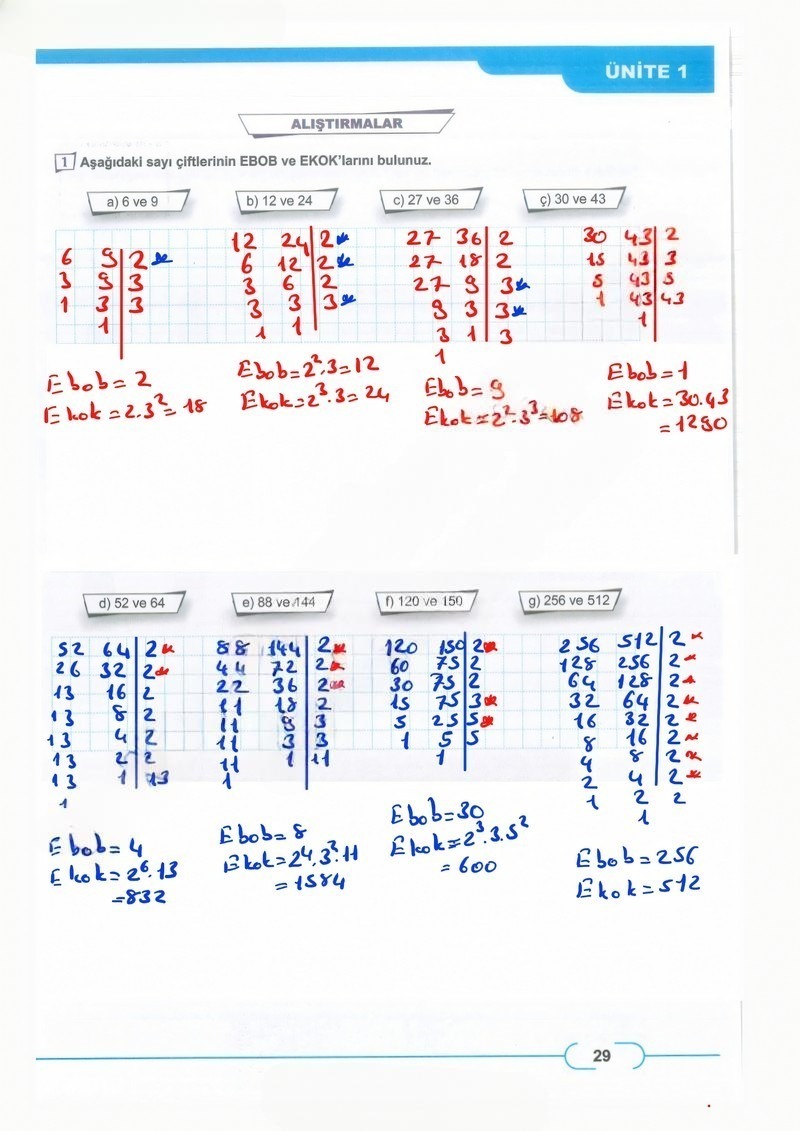 ÜNİTE 1
ALIŞTIRMALAR
1 Aşağıdaki sayı çiftlerinin EBOB ve EKOK'larını bulunuz.
a) 6 ve 9
6 9 2*
3 9 3
1 3 3
1
Ebob = 2
Ekok = 2.3² = 18
b) 12 ve 24
12 24 2*
6 12 2*
3 6 2
3 3 3*
1 1
Ebob = 2².3 = 12
Ekok = 2³.3 = 24
c) 27 ve 36
27 36 2
27 18 2
27 9 3*
9 3 3*
3 1 3
1
Ebob = 9
Ekok = 2².3³ = 108
ç) 30 ve 43
30 43 2
15 43 3
5 43 5
1 43 43
1
Ebob = 1
Ekok = 30.43
= 1290
d) 52 ve 64
52 64 2*
26 32 2*
13 16 2
13 8 2
13 4 2
13 2 2
13 1 13
1
Ebob = 4
Ekok = 2⁶.13
=832
e) 88 ve 144
88 144 2*
44 72 2*
22 36 2*
11 18 2
11 9 3
11 3 3
11 1 11
1
Ebob = 8
Ekok = 2⁴.3².11
= 1584
f) 120 ve 150
120 150 2*
60 75 2
30 75 2
15 75 3*
5 25 5*
1 5 5
1
Ebob = 30
Ekok = 2³.3.5²
= 600
g) 256 ve 512
256 512 2*
128 256 2*
64 128 2*
32 64 2*
16 32 2*
8 16 2*
4 8 2*
2 4 2*
1 2 2
1
Ebob = 256
Ekok = 512
29